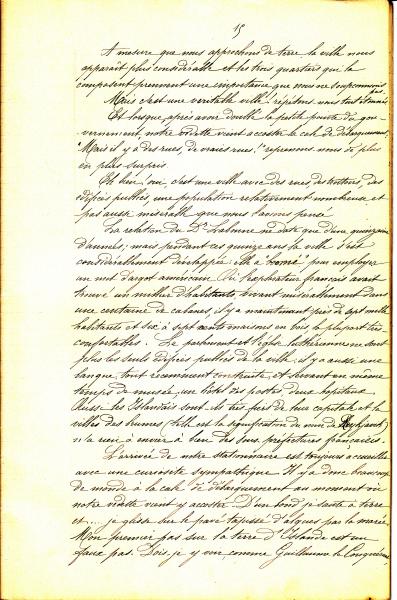 15
A mesure que nous approchons de terre la ville nous
apparaît plus considérable et les trois quartiers qui la
composent prennent une importance que nous ne soupçonnions
pas.
Mais c'est une véritable ville! répétons nous tous étonnés
Et lorsque, après avoir doublé la petite pointe du gou-
vernement, notre vedette vient accoster le cale de débarquement,
"Mais il y a des rues, de vraies rues!" reprenons nous de plus
en plus surpris
Eh bien! oui, c'est une ville avec des rues, des trottoirs, des
édifices publics, une population relativement nombreuse et
pas aussi misérable que nous l'avions pensé
La relation du Dr Labonne ne date que d'une quinzaine
d'années; mais pendant ces quinze ans la ville s'est
considérablement développée. elle a "boomé" pour employer
un mot d'argot américain. Où l'explorateur français avait
trouvé un millier d'habitants, vivant misérablement dans
une centaine de cabanes, il y a maintenant près de sept mille
habitants et six à sept cents maisons en bois la plupart très
confortables. Le parlement et l'église luthérienne ne sont
plus les seuls édifices publics de la ville; il y a aussi une
banque tout récemment construite et servant en même
temps de musée, un hôtel des postes, deux hôpitaux
Aussi les Islandais sont-ils très fiers de leur capitale et la
ville des brumes (telle est la signification du nom de
n'a rien à envier à bien des sous préfectures françaises.
L'arrivée de notre stationnaire est toujours accueillie
avec une curiosité sympathique. Il y a donc beaucoup
de monde à la cale de débarquement au moment où
notre vedette vient y accoster. D'un bond je saute à terre
et... je glisse sur le pavé tapissé d'algues par la marée
Mon premier pas sur la terre d'Islande est un
faux pas. Dois-je y voir, comme Guillaume le Conquérant,